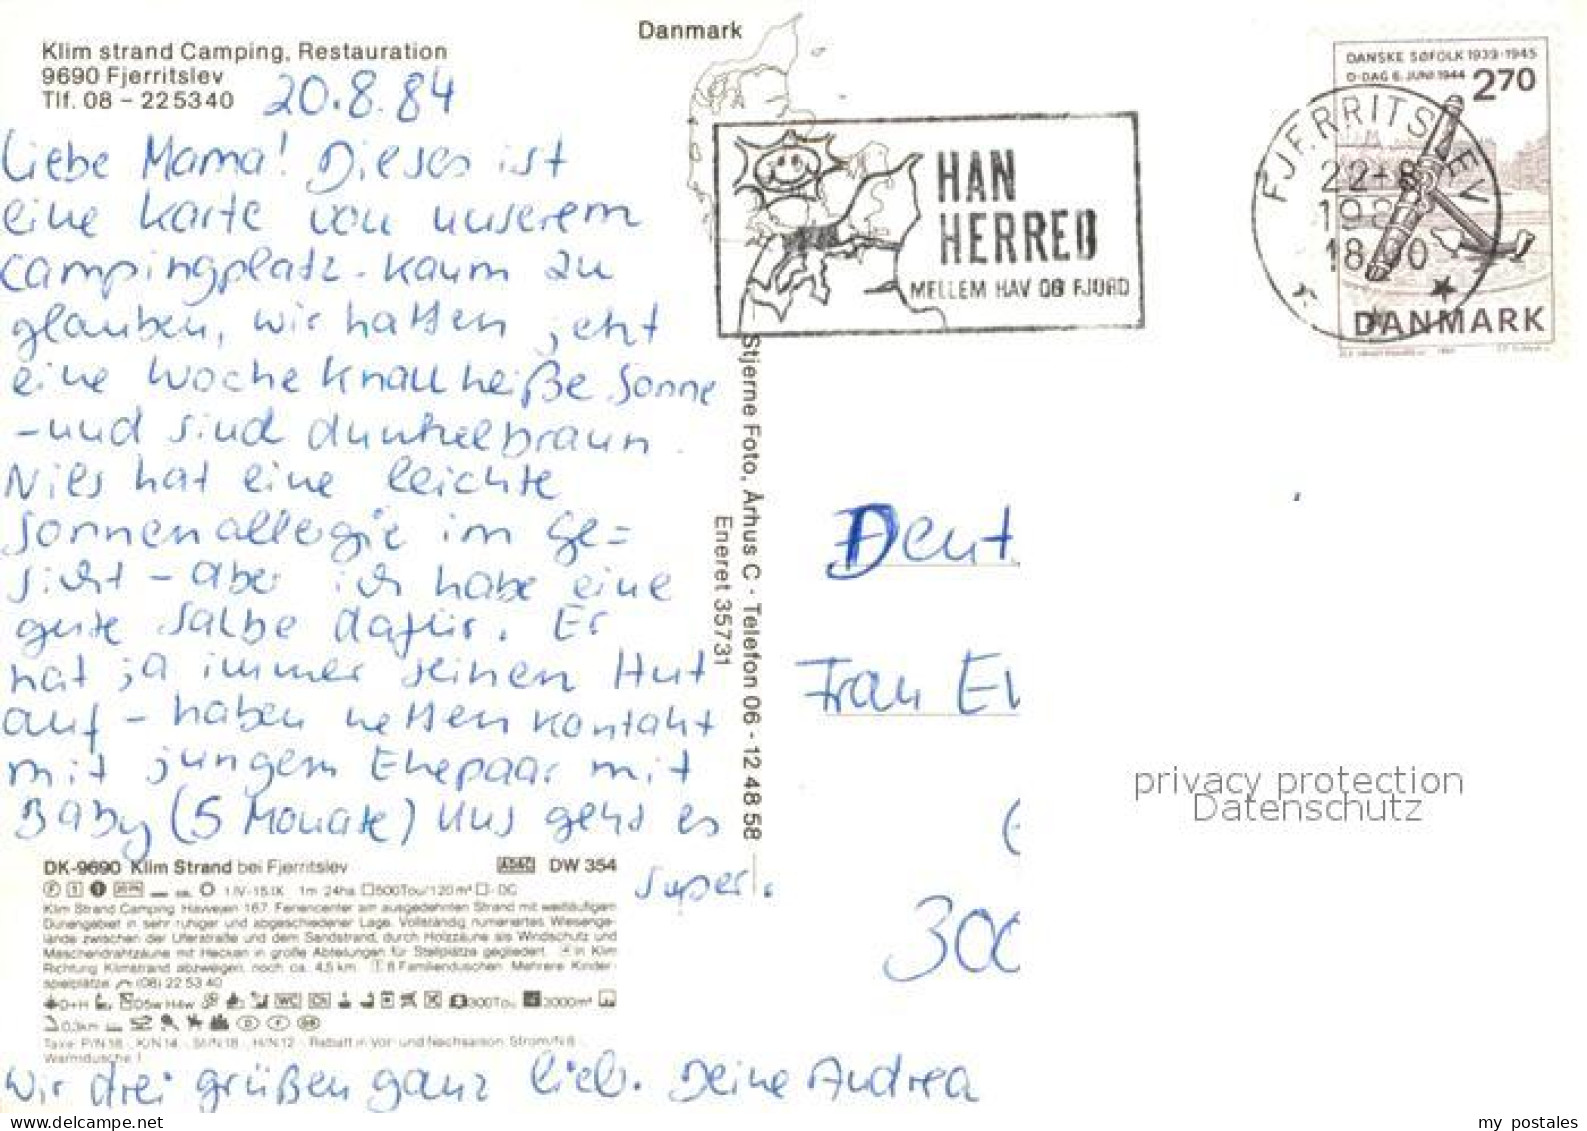 Klim strand Camping, Restauration
9690 Fjerritslev
Tlf. 08 – 225340
20.8.84
Liebe Mama! Dieses ist
eine Karte von unserem
Campingplatz. Kaum zu
glauben, wir hatten jetzt
eine Woche knallheiße Sonne
– und sind dunkelbraun.
Nils hat eine leichte
Sonnenallergie im Ge=
sicht – aber ich habe eine
gute Salbe dafür. Er
hat ja immer seinen Hut
auf – haben netten Kontakt
mit jungem Ehepaar mit
Baby (5 Monate) Uns geht es
super!.
DK-9690 Klim Strand bei Fjerritslev
ADAC DW 354
1/IV-15/IX 1m 24ha 500Tou/120m² - DC
Klim Strand Camping, Havvejen 167. Feriencenter am ausgedehnten Strand mit weitläufigem
Dünengebiet in sehr ruhiger und abgeschiedener Lage. Vollständig numeriertes Wiesenge-
lände zwischen der Uferstraße und dem Sandstrand, durch Holzzäune als Windschutz und
Maschendrahtzäune mit Hecken in große Abteilungen für Stellplätze gegliedert. in Klim
Richtung Klimstrand abzweigen, noch ca. 4,5 km. 8 Familienduschen. Mehrere Kinder-
spielplätze. (08) 22 53 40
D+H D5w H4w WC Ch 300Tou 3000m²
0,3km D F GB
Taxe: P/N 18.-, K/N 14.-, St/N 18.-, H/N 12.-. Rabatt in Vor- und Nachsaison. Strom/N 8.-
Warmdusche 1.-
Wir drei grüßen ganz lieb. Deine Andrea
Danmark
Stjerne Foto, Århus C · Telefon 06 - 12 48 58
Eneret 35731
HAN
HERRED
MELLEM HAV OG FJORD
DANSKE SØFOLK 1939-1945
D-DAG 6. JUNI 1944
270
DANMARK
FJERRITSLEV
22-8
198
18.00
Deut
Frau Ev
300
privacy protection
Datenschutz
my postales